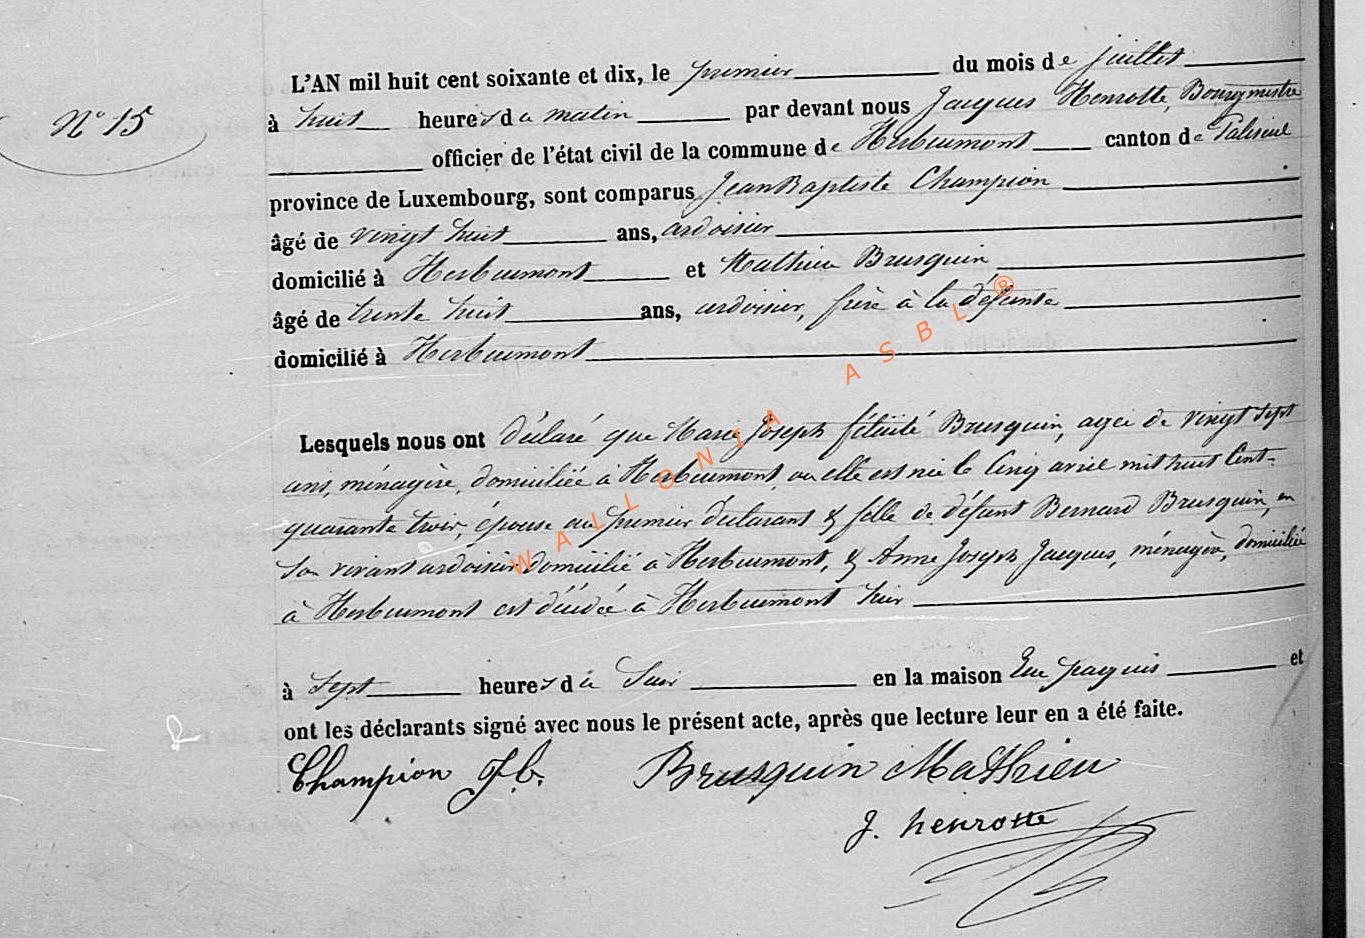 N° 15
L'AN mil huit cent soixante et dix, le premier du mois de juillet
à huit heures du matin par devant nous Jacques Henrotte, Bourgmestre
officier de l'état civil de la commune de Herbeumont canton de Paliseul
province de Luxembourg, sont comparus Jean Baptiste Champion
âgé de vingt huit ans, ardoisier
domicilié à Herbeumont et Mathieu Brusquin
âgé de trente huit ans, ardoisier, frère à la défunte
domicilié à Herbeumont
Lesquels nous ont déclaré que Marie Joseph félicité Brusquin, agée de vingt sept
ans, ménagère, domiciliée à Herbeumont, ou elle est née le Cinq avril mil huit Cent-
quarante trois, épouse au premier déclarant & fille de défunt Bernard Brusquin, en
son vivant ardoisier domicilié à Herbeumont, & Anne Joseph Jacques, ménagère, domiciliée
à Herbeumont est décédée à Herbeumont hier
à Sept heures du Soir en la maison et
ont les déclarants signé avec nous le présent acte, après que lecture leur en a été faite.
Champion J b. Brusquin Mathieu
J. henrotte
WALLONIA ASBL ®